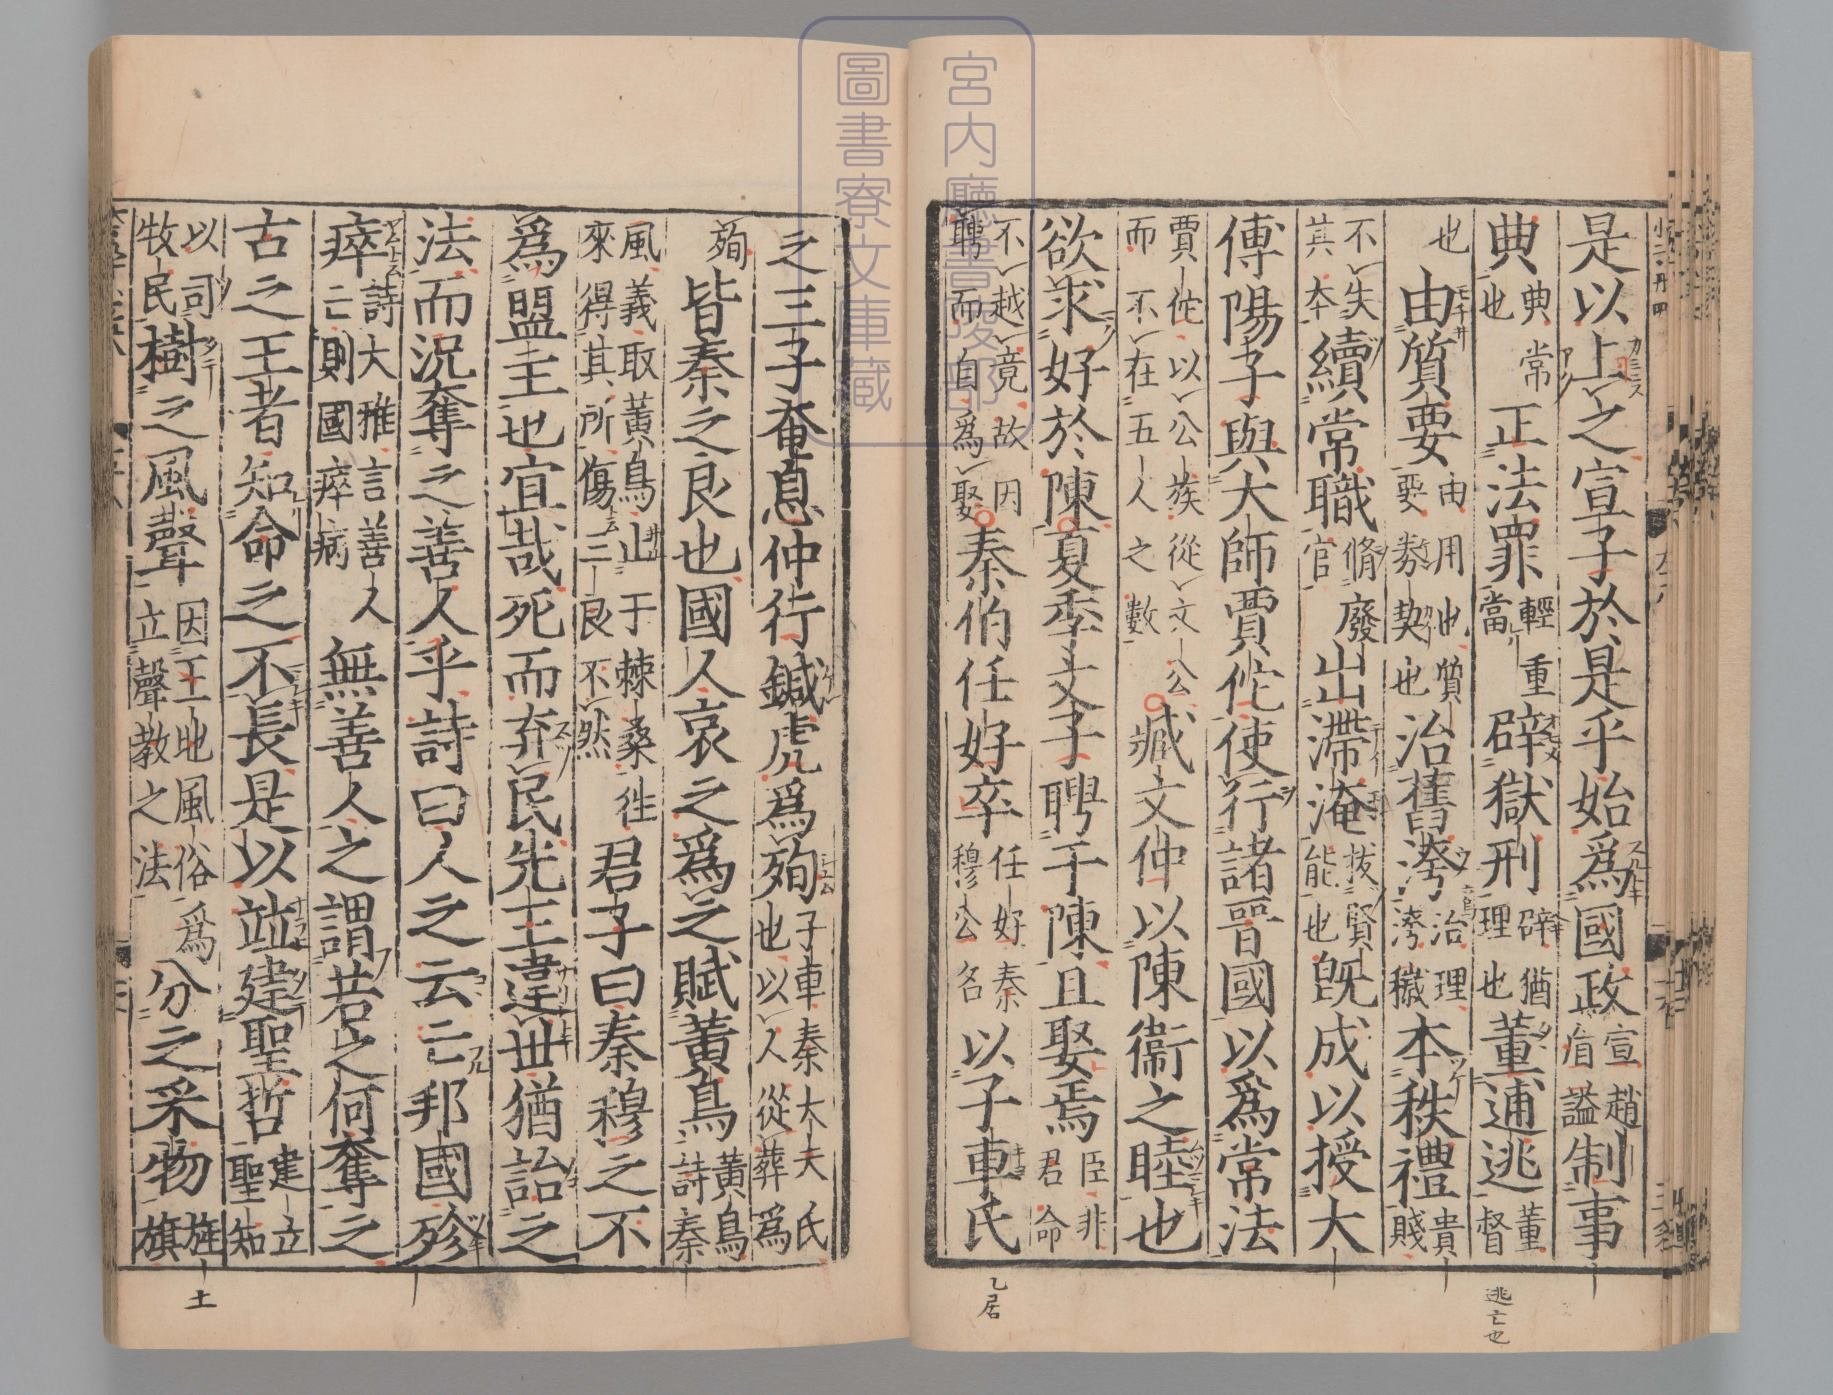 是以上之宣子於是乎始爲國政宣趙盾謚制事
典典常也正法罪輕重當辟獄刑辟猶理也董逋逃董督
也由質要由用也質要券契也治舊洿治理洿穢本秩禮貴賤
不失其本續常職脩廢官出滯淹拔賢能也既成以授大
傅陽子與大師賈佗使行諸晉國以爲常法
賈佗以公族從文公而不在五人之數臧文仲以陳衞之睦也
欲求好於陳夏季文子聘于陳且娶焉臣非君命
不越竟故因聘而自爲娶秦伯任好卒任好秦穆公名以子車氏
逃亡也
乙居
之三子奄息仲行鍼虎爲殉子車秦大夫氏也以人從葬爲
殉皆秦之良也國人哀之爲之賦黃鳥黃鳥詩秦
風義取黃鳥止于棘桑往來得其所傷三良不然君子曰秦穆之不
爲盟主也宜哉死而弃民先王違世猶詒之
法而況奪之善人乎詩曰人之云亡邦國殄
瘁詩大雅言善人亡則國瘁病無善人之謂若之何奪之
古之王者知命之不長是以竝建聖哲建立聖知
以司牧民樹之風聲因王地風俗爲立聲教之法分之采物旌旗
土
宮内廳書陵部
圖書寮文庫藏